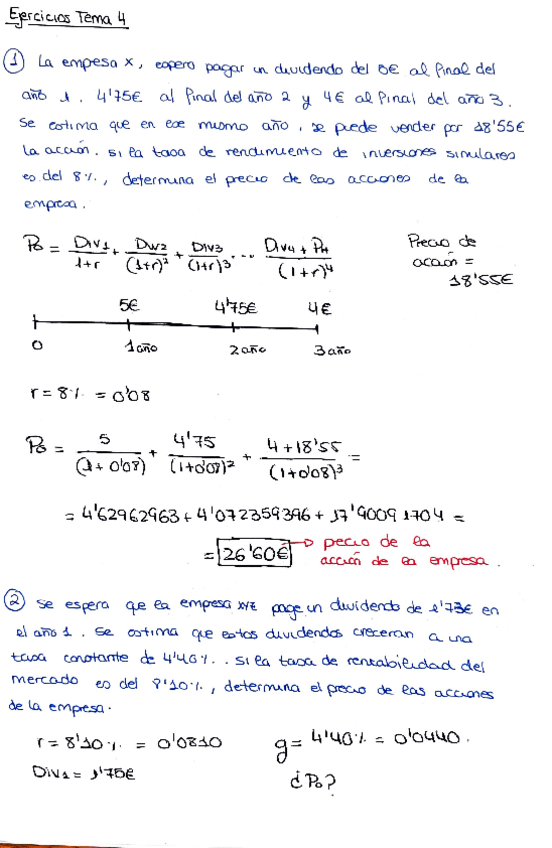 Ejercicios Tema 4
① La empesa X, espera pagar un dividendo del 5€ al final del
año 1. 4'75€ al final del año 2 y 4€ al final del año 3.
Se estima que en ese mismo año, se puede vender por 18'55€
la acción. si la tasa de rendimiento de inversiones similares
es del 8%, determina el precio de las acciones de la
empresa.
P₀ = Div1/(1+r) + Div2/(1+r)² + Div3/(1+r)³ ... (Div4 + PH)/(1+r)⁴
Precio de
acción =
18'55€
5€ 4'75€ 4€
0 1año 2año 3año
r = 8% = 0'08
P₀ = 5/(1+0'08) + 4'75/(1+0'08)² + (4+18'55)/(1+0'08)³ =
= 4'62962963 + 4'072359396 + 17'90091704 =
= 26'60€ → pecio de la
acción de la empresa.
② Se espera que la empresa XYZ page un dividendo de 1'73€ en
el año 1. Se estima que estos dividendos creceran a una
tasa constante de 4'40%. Si la tasa de rentabilidad del
mercado es del 8'10%, determina el precio de las acciones
de la empresa.
r = 8'10% = 0'0810 g = 4'40% = 0'0440.
Div1 = 1'75€ ¿P₀?